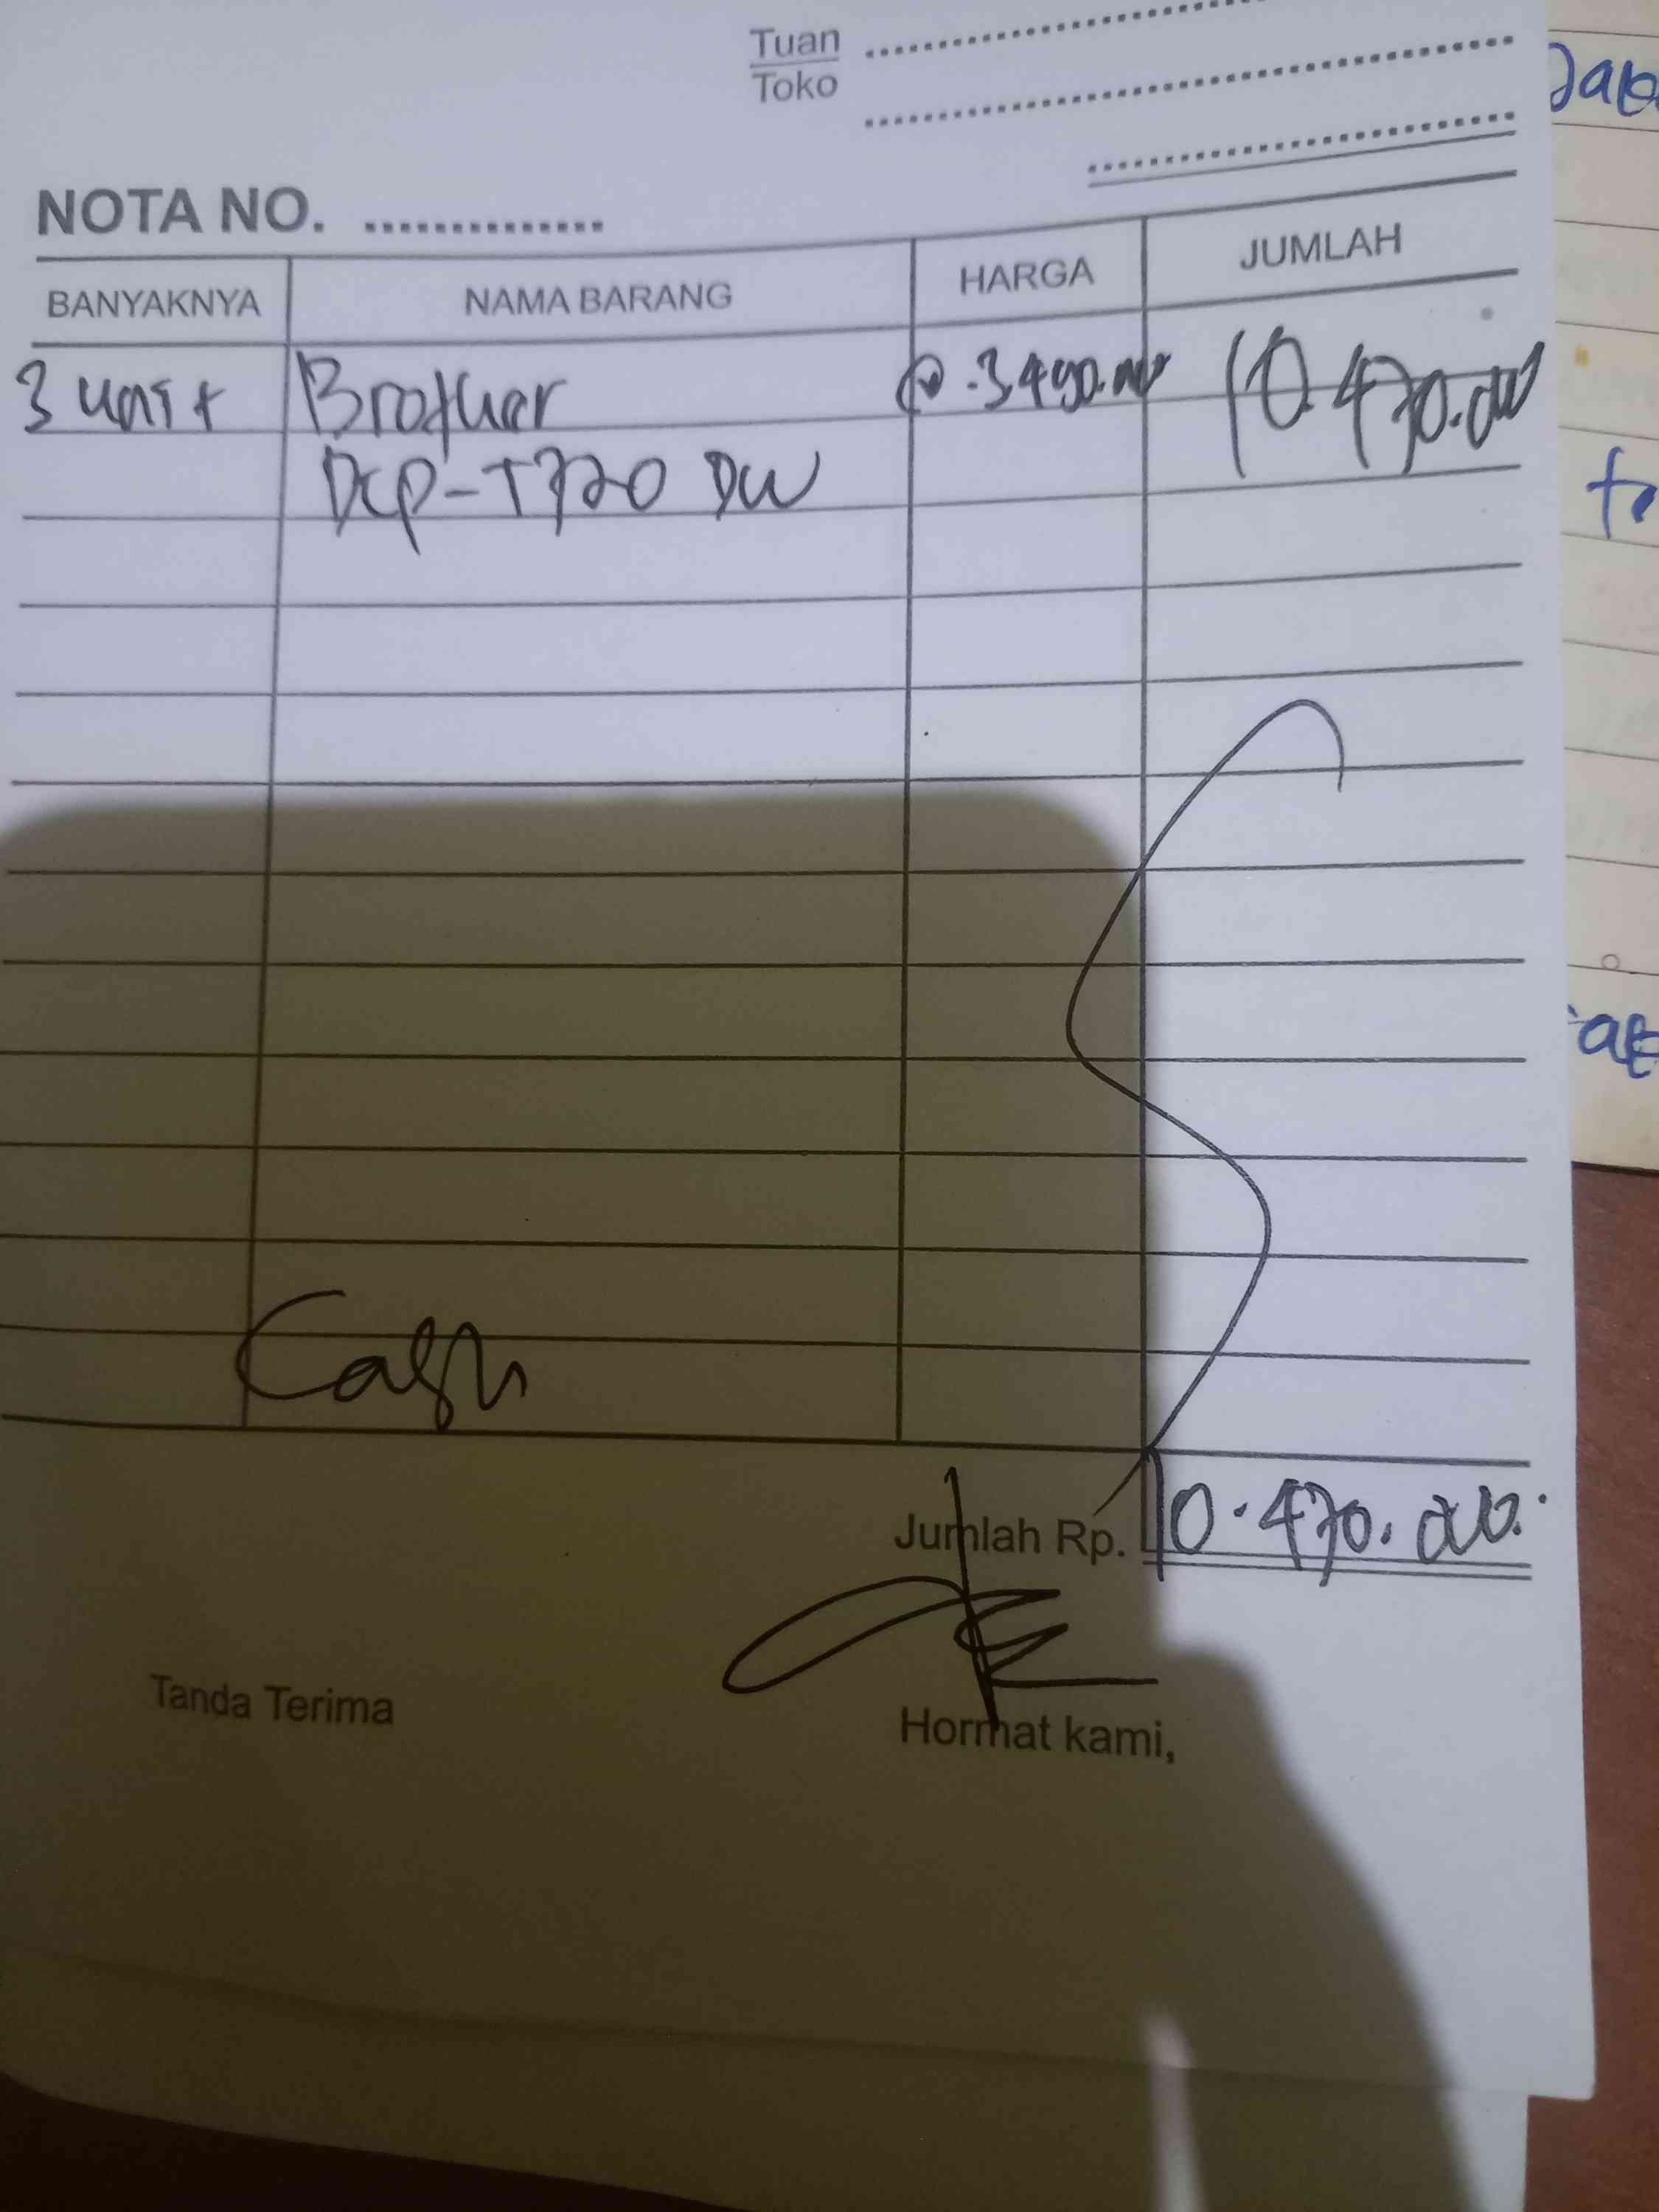 Tuan
Toko
NOTA NO. ..............
BANYAKNYA NAMA BARANG HARGA JUMLAH
3 unit Brother @.3490.000 10.470.000
DCP-T720 DW
Cash
Jumlah Rp. 10.470.000.
Tanda Terima
Hormat kami,